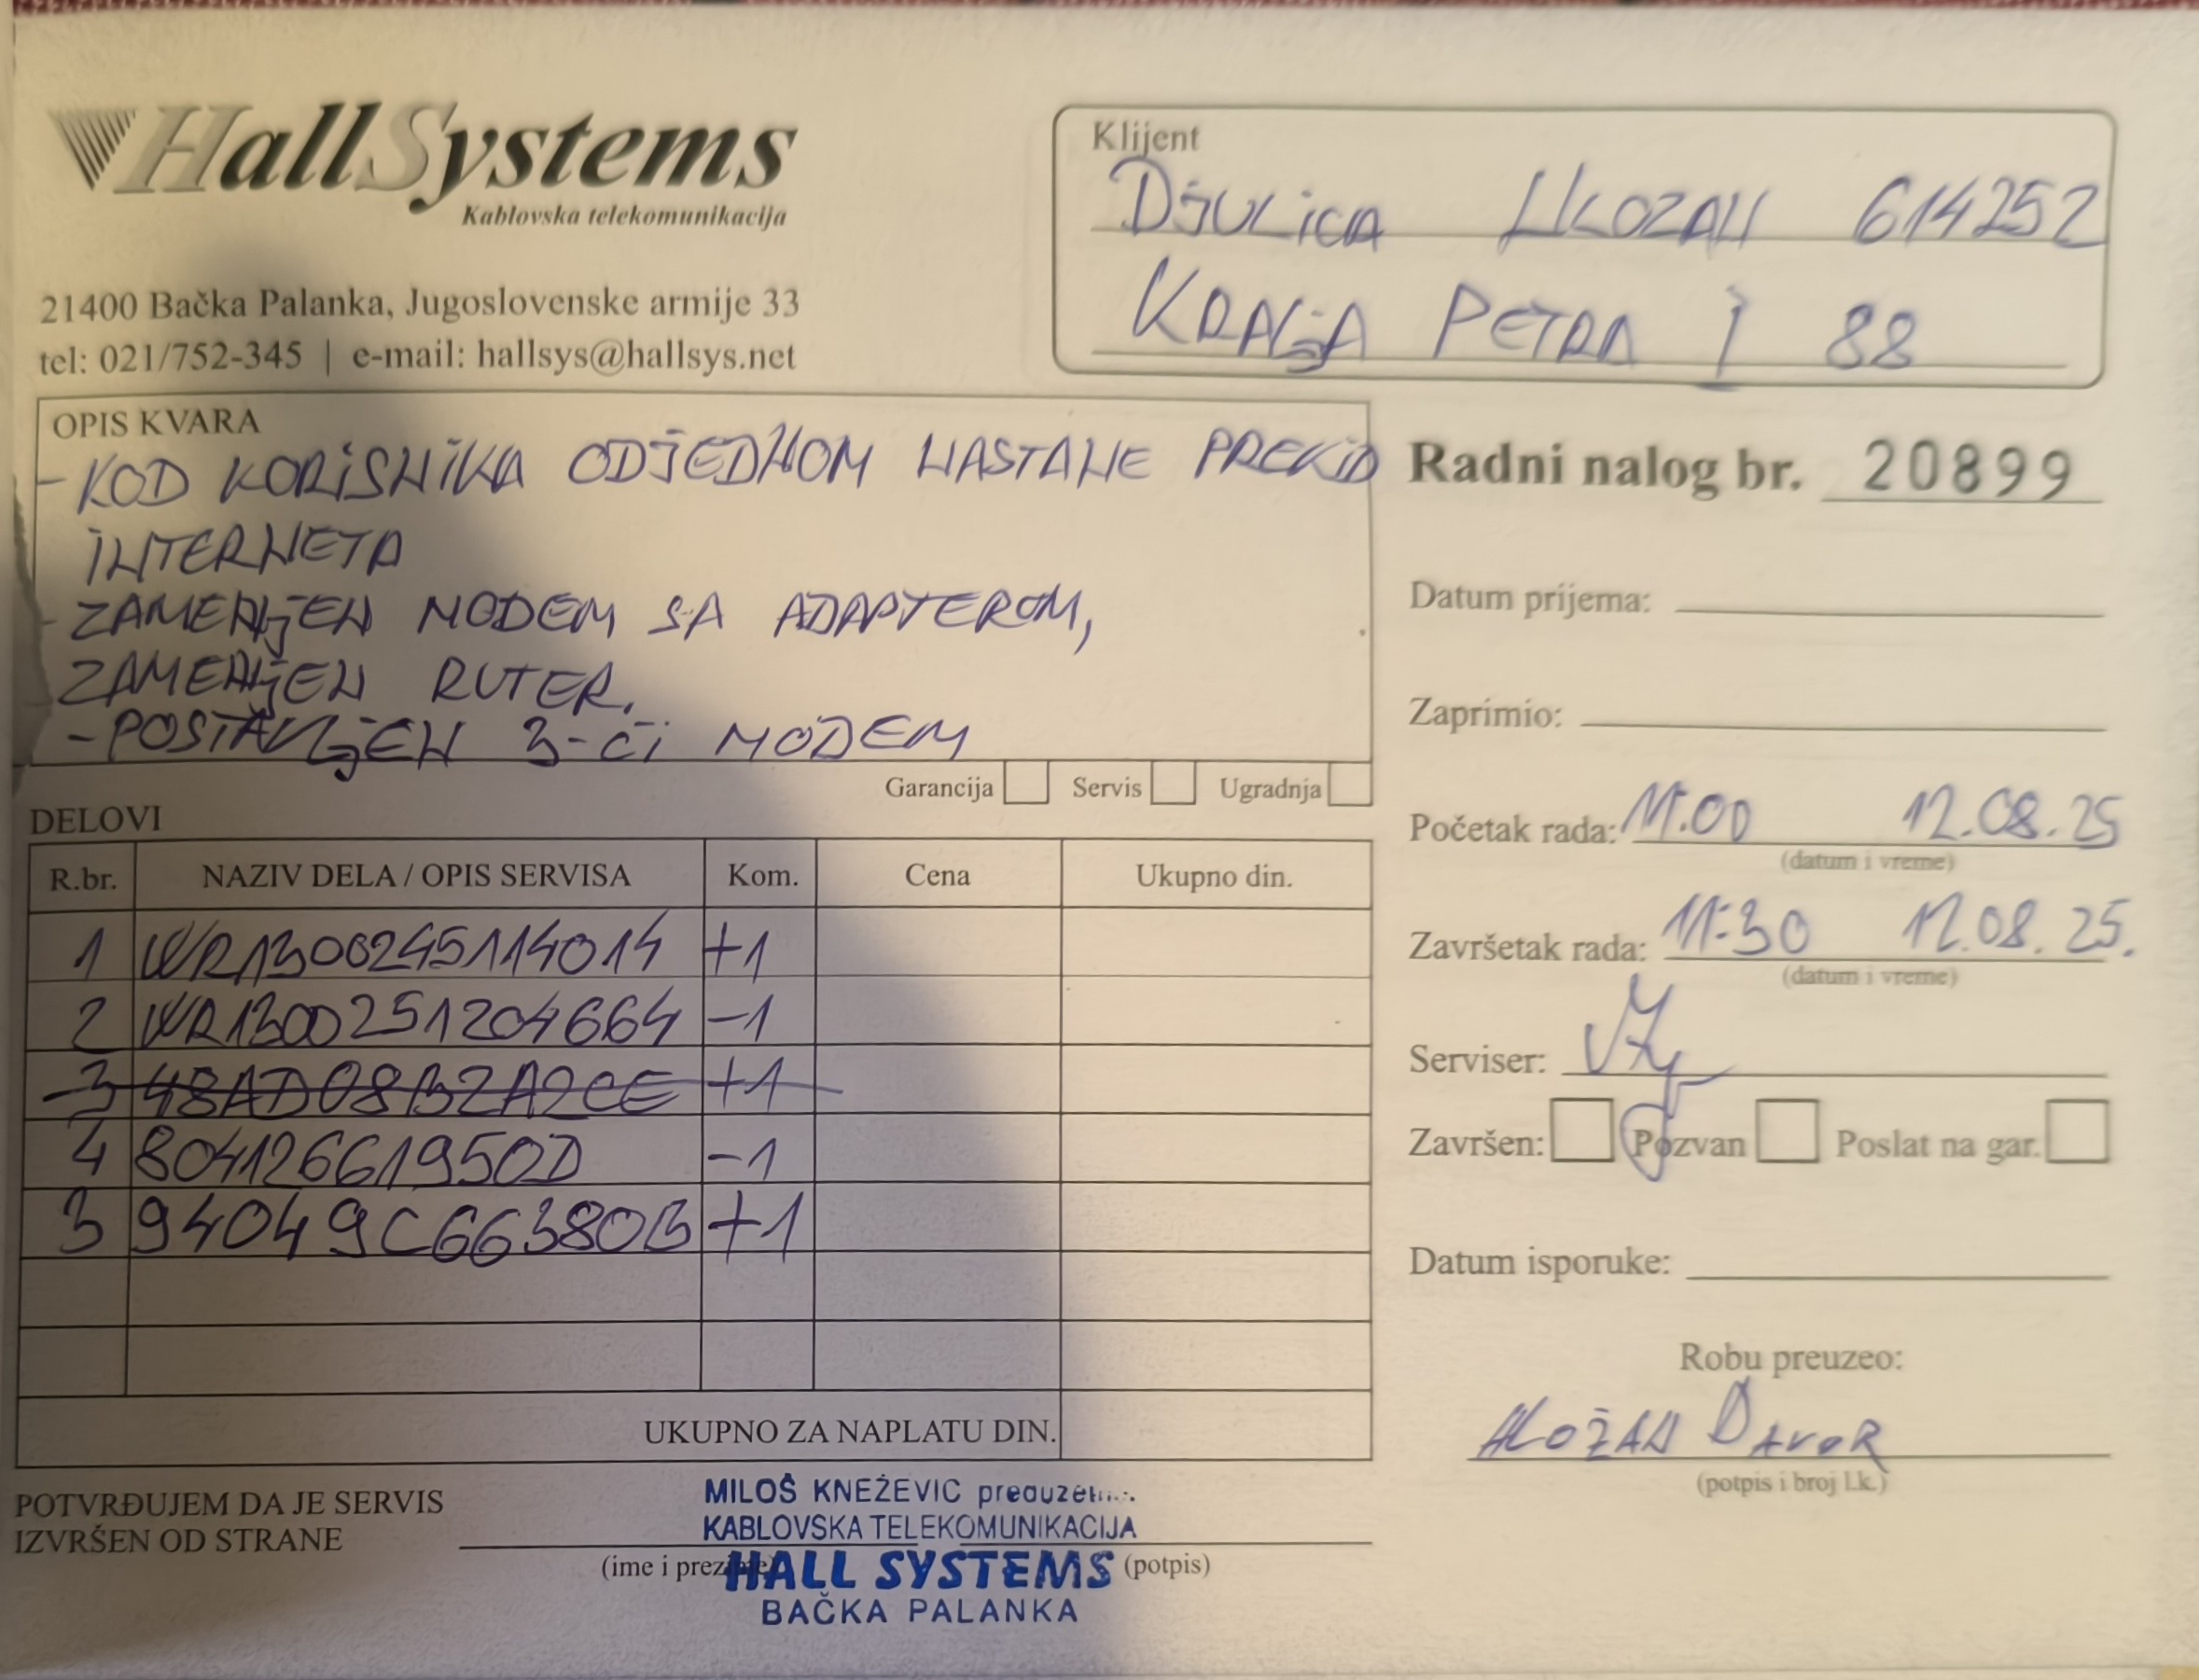 HallSystems
Kablovska telekomunikacija
21400 Bačka Palanka, Jugoslovenske armije 33
tel: 021/752-345 | e-mail: hallsys@hallsys.net
Klijent
DJULICA 614252
KRALJA PETRA I 88
OPIS KVARA
- KOD KORISNIKA ODJEDNOM NASTANE PREKID
INTERNETA
- ZAMENJEN MODEM SA ADAPTEROM,
ZAMENJEN RUTER.
- POSTAVLJEN 3-ĆI MODEM
Garancija Servis Ugradnja
Radni nalog br. 20899
Datum prijema:
Zaprimio:
Početak rada: 11:00 12.08.25
(datum i vreme)
Završetak rada: 11:30 12.08.25.
(datum i vreme)
Serviser:
Završen: Pozvan Poslat na gar.
Datum isporuke:
Robu preuzeo:
DAVOR
(potpis i broj l.k.)
DELOVI
R.br. NAZIV DELA / OPIS SERVISA Kom. Cena Ukupno din.
1 WR1300245114014 +1
2 WR1300251204664 -1
3 48AD08B2A2CE +1
4 80412661950D -1
3 94049C66380B +1
UKUPNO ZA NAPLATU DIN.
POTVRĐUJEM DA JE SERVIS
IZVRŠEN OD STRANE
(ime i prezime) (potpis)
MILOŠ KNEŽEVIĆ
KABLOVSKA TELEKOMUNIKACIJA
HALL SYSTEMS
BAČKA PALANKA